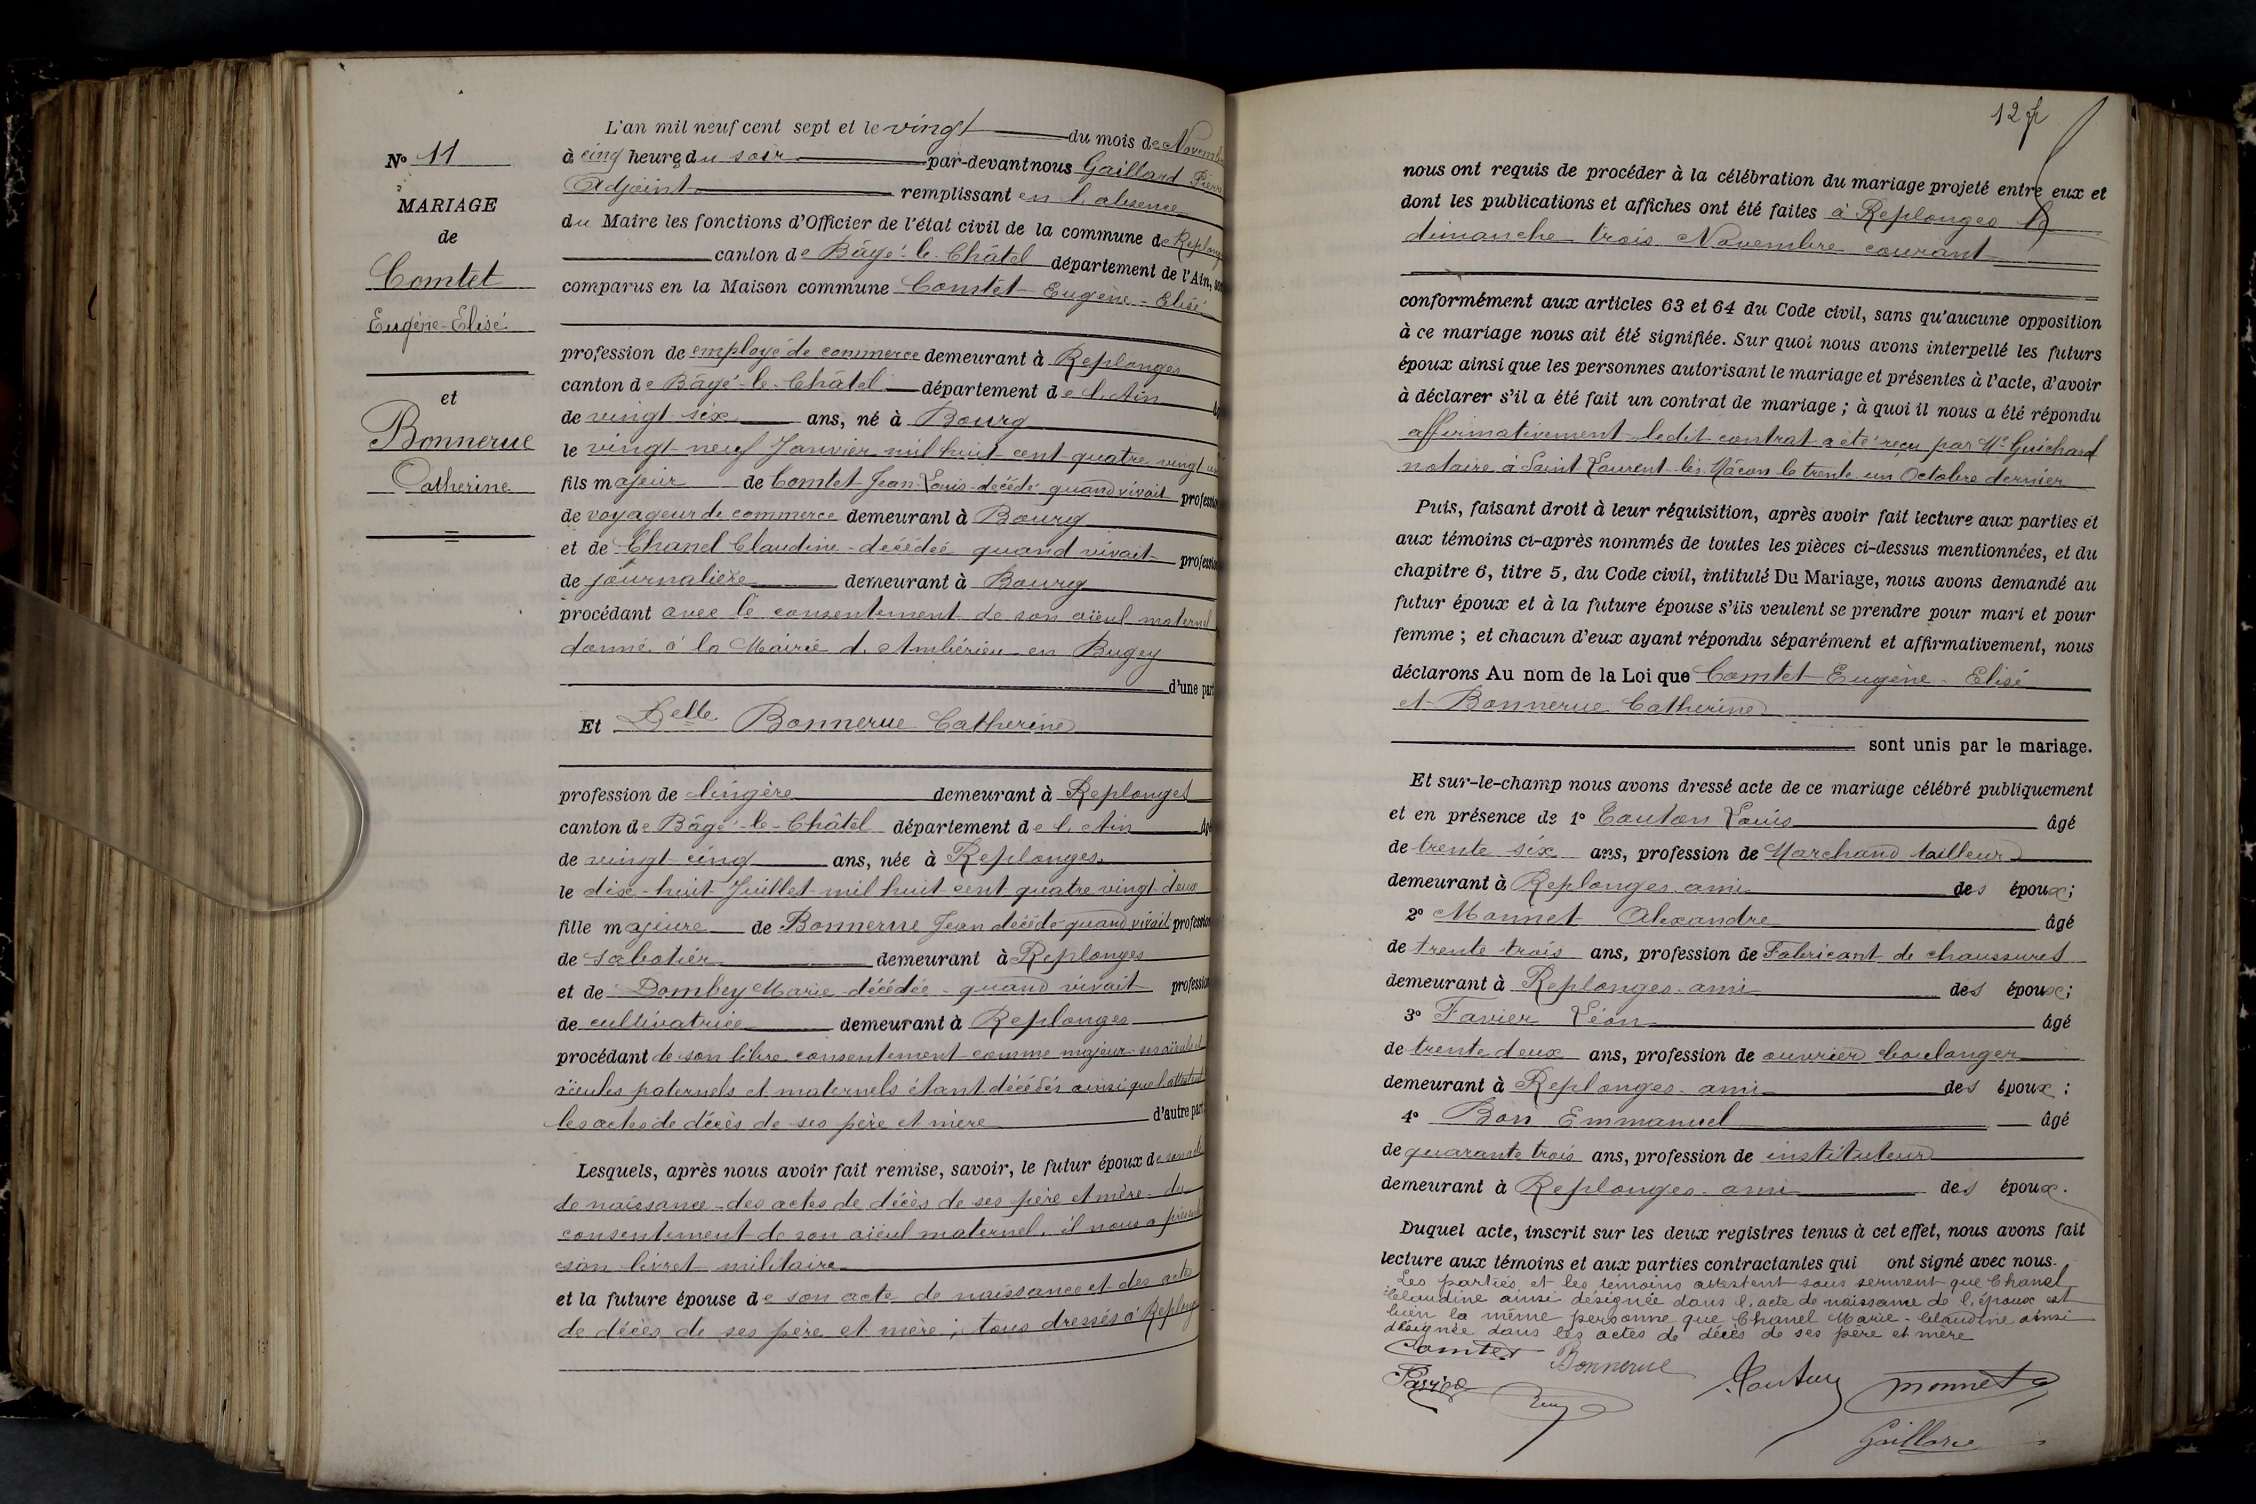 N° 11
MARIAGE
de
Comtet
Eugène-Elisé
et
Bonnerue
Catherine
L'an mil neuf cent sept et le vingt du mois de Novembre
à cinq heures du soir par-devant nous Gaillard Pierre
Adjoint remplissant en l'absence
du Maire les fonctions d'Officier de l'état civil de la commune de Replong
canton de Bâgé-le-Châtel département de l'Ain,
comparus en la Maison commune Comtet Eugène-Elisé
profession de employé de commerce demeurant à Replonges
canton de Bâgé-le-Châtel département de l'Ain
de vingt-six ans, né à Bourg
le vingt neuf Janvier mil huit cent quatre vingt un
fils majeur de Comtet Jean-Louis décédé quand vivait profession
de voyageur de commerce demeurant à Bourg
et de Chanel Claudine décédée quand vivait profession
de journalière demeurant à Bourg
procédant avec le consentement de son aïeul maternel
donné à la Mairie d'Ambérieu-en Bugey
d'une part
Et Delle Bonnerue Catherine
profession de lingère demeurant à Replonges
canton de Bâgé-le-Châtel département de l'Ain âgé
de vingt cinq ans, née à Replonges
le dix-huit Juillet mil huit cent quatre vingt deux
fille majeure de Bonnerue Jean décédé quand vivait profession
de sabotier demeurant à Replonges
et de Dombey Marie décédée quand vivait profession
de cultivatrice demeurant à Replonges
procédant de son libre consentement comme majeur ses aïeuls et
aïeules paternels et maternels étant décédés ainsi que l'attestent
les actes de décès de ses père et mère d'autre part
Lesquels, après nous avoir fait remise, savoir, le futur époux de son acte
de naissance des actes de décès de ses père et mère du
consentement de son aïeul maternel. il nous a présenté
son livret militaire
et la future épouse de son acte de naissance et des actes
de décès de ses père et mère ; tous dressés à Replong
12 fr
nous ont requis de procéder à la célébration du mariage projeté entre eux et
dont les publications et affiches ont été faites à Replonges le
dimanche trois Novembre courant
conformément aux articles 63 et 64 du Code civil, sans qu'aucune opposition
à ce mariage nous ait été signifiée. Sur quoi nous avons interpellé les futurs
époux ainsi que les personnes autorisant le mariage et présentes à l'acte, d'avoir
à déclarer s'il a été fait un contrat de mariage ; à quoi il nous a été répondu
affirmativement ledit contrat a été reçu par Me Guichard
notaire à Saint Laurent-lès-Mâcon le trente un Octobre dernier
Puis, faisant droit à leur réquisition, après avoir fait lecture aux parties et
aux témoins ci-après nommés de toutes les pièces ci-dessus mentionnées, et du
chapitre 6, titre 5, du Code civil, intitulé Du Mariage, nous avons demandé au
futur époux et à la future épouse s'iis veulent se prendre pour mari et pour
femme ; et chacun d'eux ayant répondu séparément et affirmativement, nous
déclarons Au nom de la Loi que Comtet Eugène-Elisé
et Bonnerue Catherine
sont unis par le mariage.
Et sur-le-champ nous avons dressé acte de ce mariage célébré publiquement
et en présence de 1° Tauton Louis âgé
de trente six ans, profession de Marchand tailleur
demeurant à Replonges ami des époux;
2° Monnet Alexandre âgé
de trente trois ans, profession de Fabricant de chaussures
demeurant à Replonges ami des époux;
3° Favier Léon âgé
de trente deux ans, profession de ouvrier boulanger
demeurant à Replonges ami des époux ;
4° Bon Emmanuel âgé
de quarante trois ans, profession de instituteur
demeurant à Replonges ami des époux.
Duquel acte, inscrit sur les deux registres tenus à cet effet, nous avons fait
lecture aux témoins et aux parties contractantes qui ont signé avec nous.
Les parties et les témoins attestent sous serment que Chanel
Claudine ainsi désignée dans l'acte de naissance de l'époux est
bien la même personne que Chanel Marie-Claudine ainsi
désignée dans les actes de décès de ses père et mère
Comtet Bonnerue
Favier Tautou Monnet
Gaillard